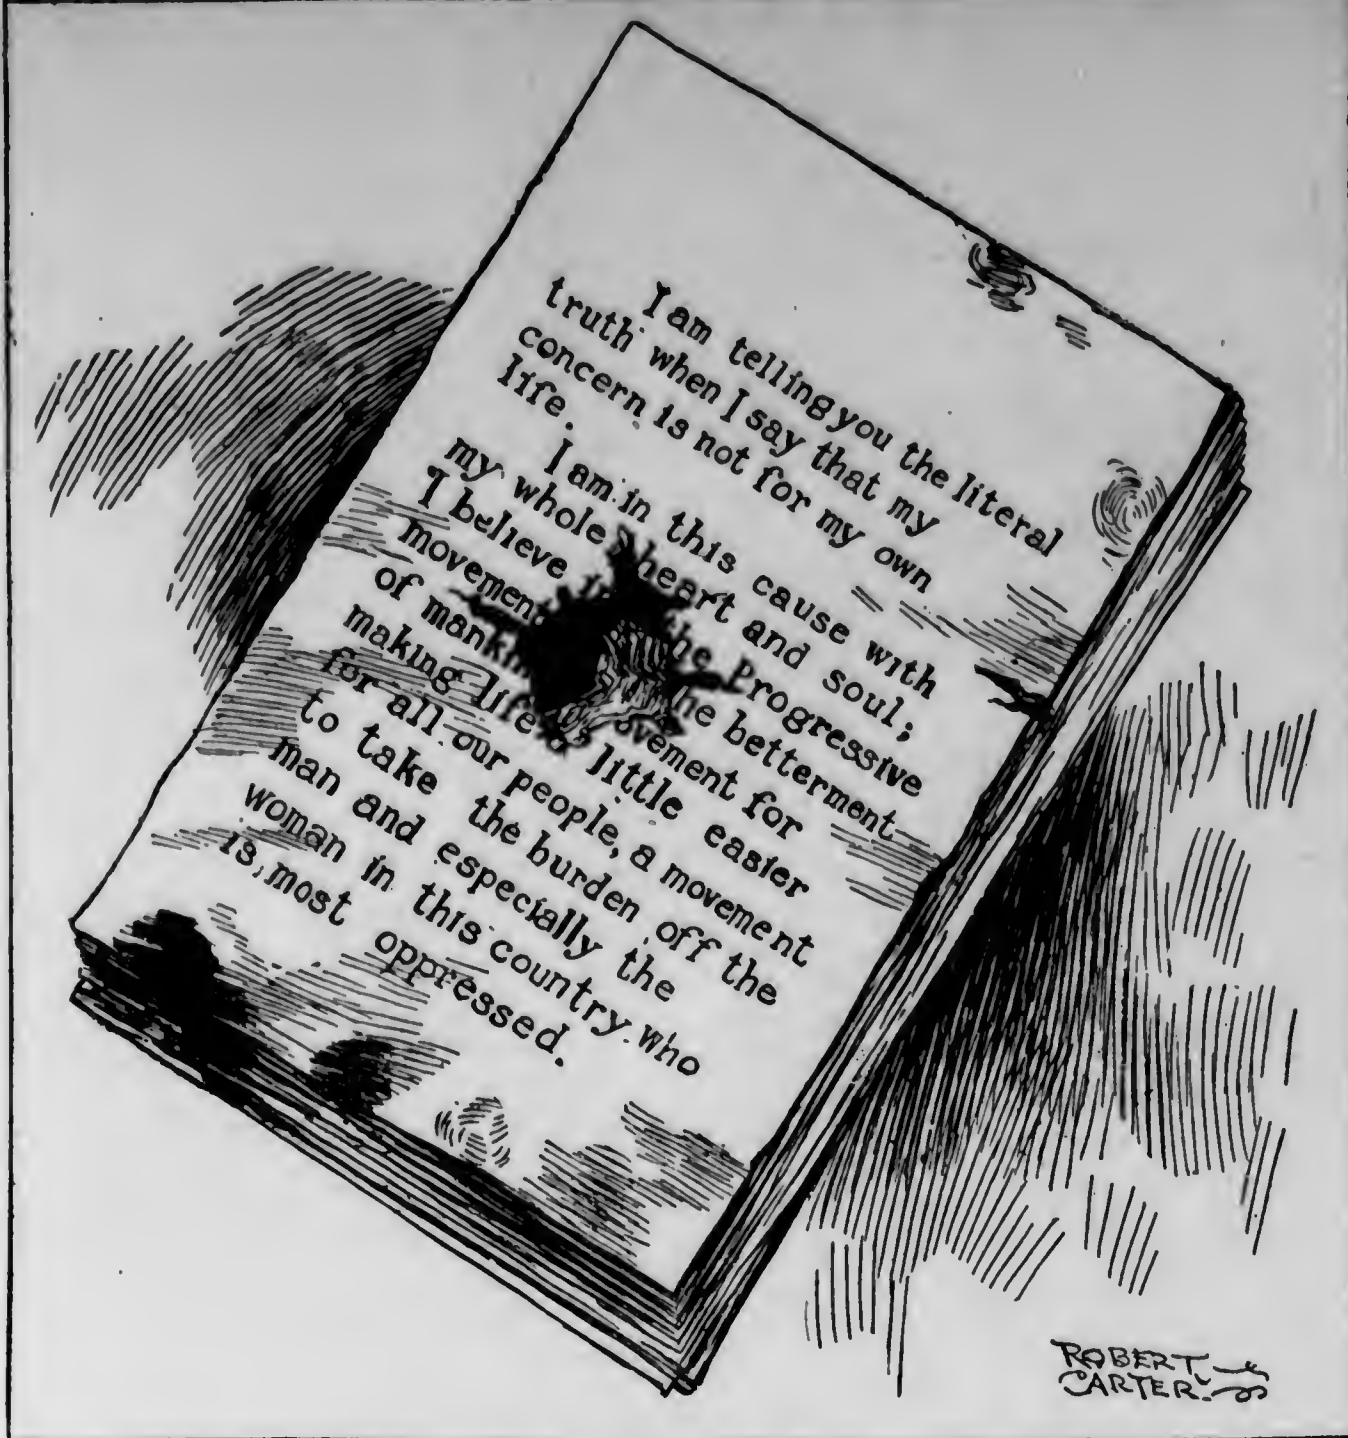 I am telling you the literal
truth when I say that my
concern is not for my own
life.
I am in this cause with
my whole heart and soul;
I believe he Progressive
movement he betterment
of mankin ovement for
making life a little easier
for all our people, a movement
to take the burden off the
man and especially the
woman in this country who
is most oppressed.
ROBERT
CARTER.